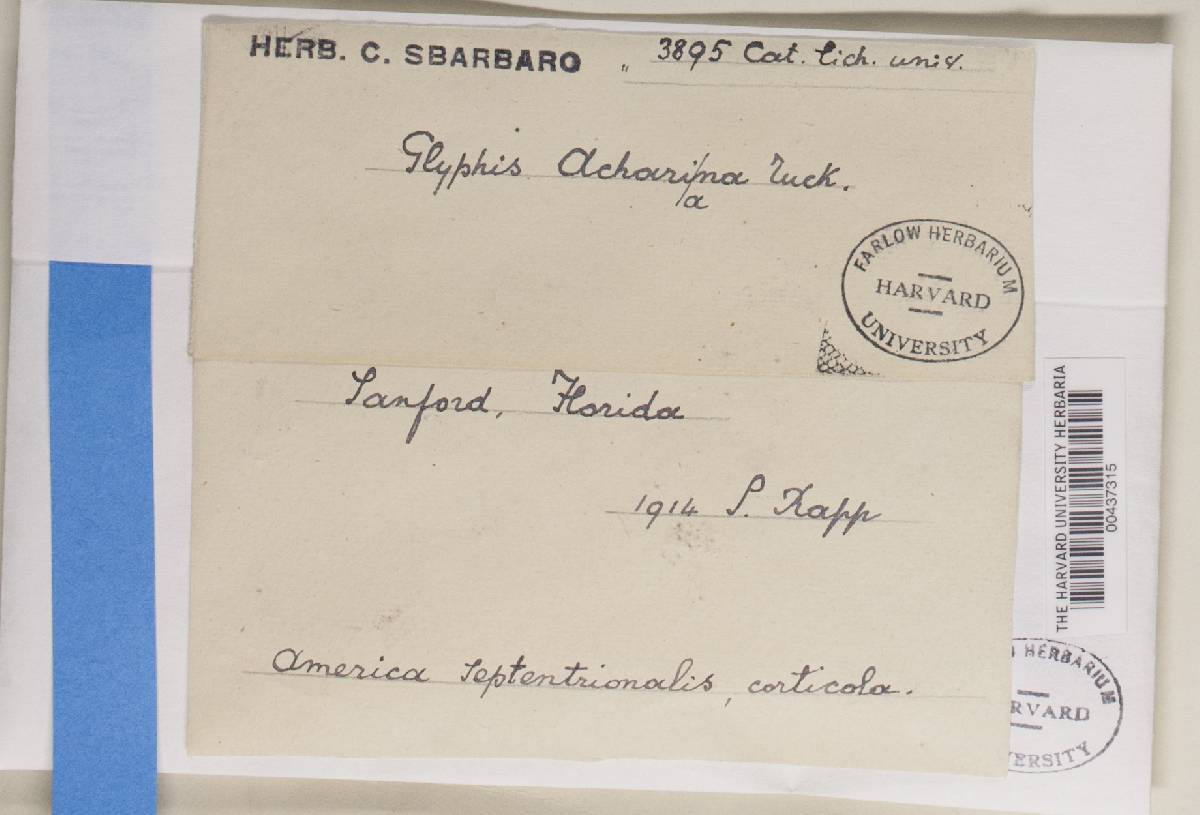 HERB. C. SBARBARO
„ 3895 Cat. lich. univ.
Glyphis Achari/na Tuck.
/a
FARLOW HERBARIUM
HARVARD
UNIVERSITY
Sanford, Florida
1914 S. Rapp
America septentrionalis, corticola.
THE HARVARD UNIVERSITY HERBARIA
00437315
HERBARIUM
RVARD
ERSITY